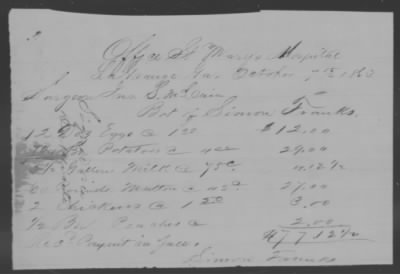 Office St Marys Hospital
LaGrange Ga. October 7th 1863
Surgeon Jno S. McLain
Bot of Simon Franks.
12 Doz Eggs @ 1 00 $12.00
Bu Potatoes @ 24.00
Gallons Milk @ 75c 4.12½
Pounds Mutton @ 27.00
2 Chickens @ 1 50 3.00
½ Bu Peaches @ 2.00
Recd Paymt in full. $77.12½
Simon Franks